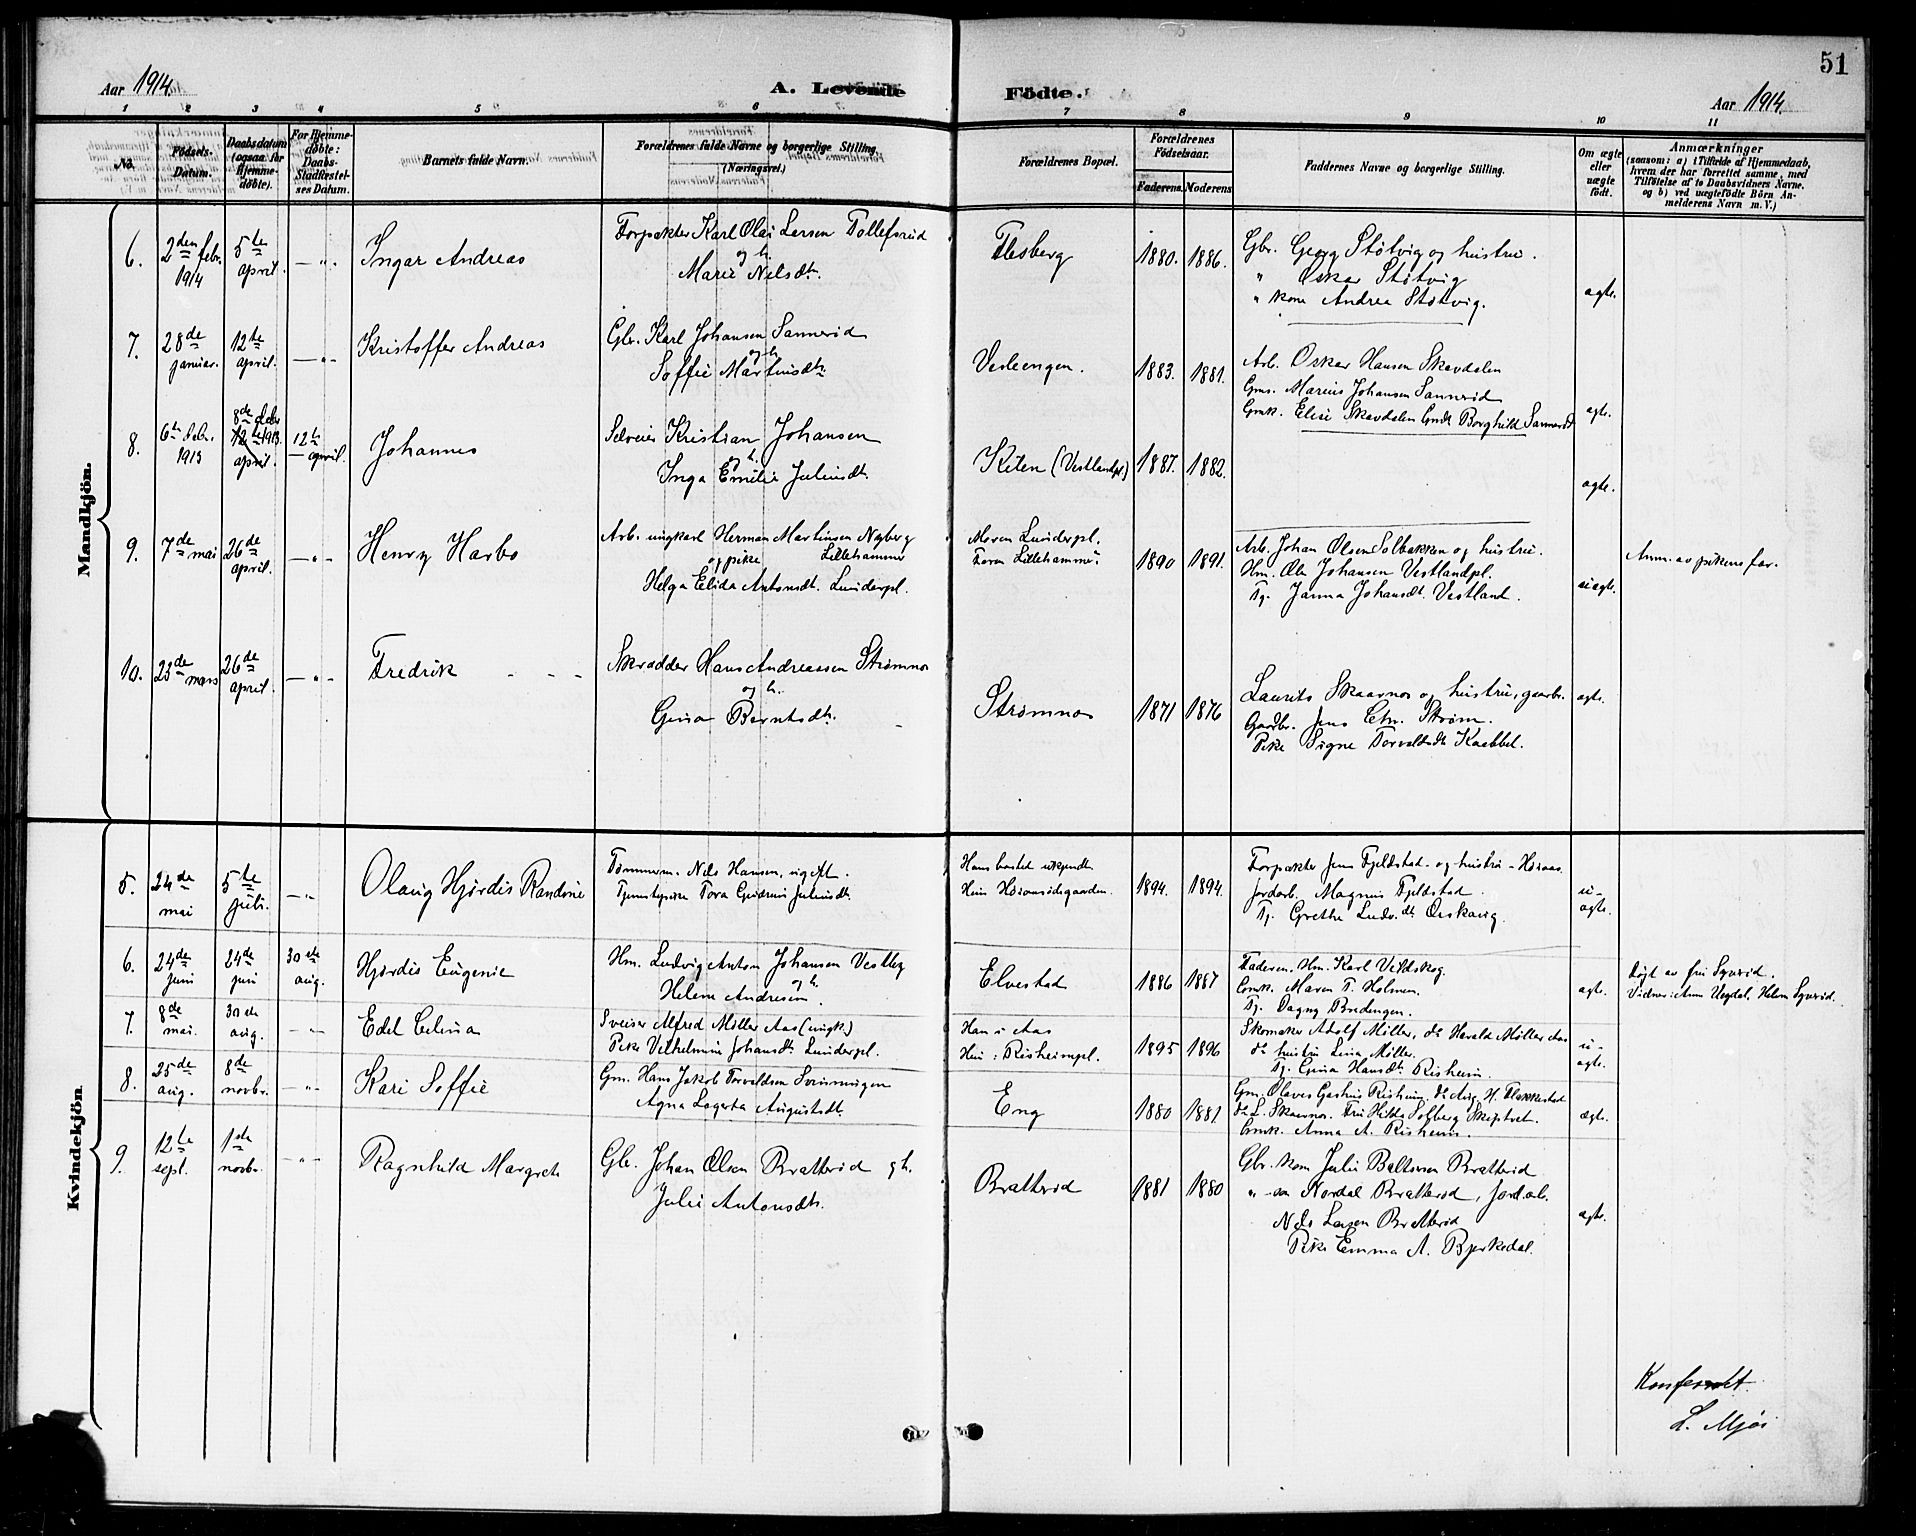 51
Aar 1914.
A. Levende Födte.
Aar 1914.
1 2 3 4 5 6 7 8 9 10 11
No.
Födsels-Datum.
Daabsdatum (ogsaa for Hjemmedöbte).
For Hjemmedöbte: Daabs-Stadfæstelses Datum.
Barnets fulde Navn.
Forældrenes fulde Navne og borgerlige Stilling. (Næringsvei.)
Forældrenes Bopæl.
Forældrenes Födselsaar.
Faderens. Moderens
Faddernes Navne og borgerlige Stilling.
Om ægte eller uægte födt.
Anmærkninger
(saasom: a) i Tilfælde af Hjemmedaab,
hvem der har forrettet samme, med
Tilföielse af to Daabsvidners Navne.
og b) ved uægtefödte Börn An-
melderens Navn m. V.)
Mandkjön.
6. 2den febr. 1914 5te april. — " — Ingar Andreas
Forpakter Karl Olai Larsen Tollefsrud
og h.
Marie Nilsdt.
Flesberg 1880. 1886.
Gbr. Georg Støtvig og hustru.
" Oskar Støtvig
" kone Andrea Støtvig.
ægte.
7. 28de januar. 12te april. — " — Kristoffer Andreas
Gbr. Karl Johansen Sannerød
og h.
Soffie Martinsdt.
Vesleengen. 1883. 1881.
Arb. Oskar Hansen Skavdalen
Gms. Marius Johansen Sannerød
Gmk. Elise Skavdalen Gmdt. Borghild Sannerød
ægte.
8. 6te debr. 1913 8de debr. 1913. 12te april. 12te april. Johannes
Selveier Kristian Johansen
og h.
Inga Emilie Juliusdt.
Kilen (Vestlandpl.) 1887. 1882.
ægte.
9. 7de mai 26de april. — " — Henry Harbo
Arb. ungkarl Herman Martinsen Nyberg
og pike Lillehammer
Helga Elida Antonsdt. Lunderpl.
Moren Lunderpl.
Faren Lillehammer
1890 1891.
Arb. Johan Olsen Solbakken og hustru.
Hm. Ole Johansen Vestlandpl.
Pg. Janna Johansdt. Vestland.
uægte.
Anm. av pikens far.
10. 23de mars 26de april. — " — Fredrik
Skrædder Hans Andreassen Strømnes
og h.
Gina Berntsdt.
Strømnes 1871 1876
Laurits Skaarnes og hustru, gaarbr.
Gaardbr. Jens Chr. Strøm.
Pike Signe Torvaldsdt. Kabbel.
ægte.
Kvindekjön.
5. 24de mai 5te juli. — " — Olaug Hjørdis Randine
Tømmerm. Nils Hansen, ugift.
Tjenestepike Tora Gudrun Juliusdt.
Hans bosted ukjendt
1894. 1894.
Forpakter Jens Fjeldstad og hustru
Jordarb. Magnus Fjeldstad.
Pg. Grethe Ludv.dt. Ørskaug.
u-ægte.
6. 24de juni 24de juni 30te aug. Hjørdis Eugenie
Hm. Ludvig Anton Johansen Vestby
og h.
Helene Andresen.
Elvestad 1886 1887
Faderen, Hm. Karl Veldskog
Gmk. Maren T. Holmen.
Pg. Dagny Bredengen.
ægte.
Døpt av fru Syverød.
Vidner: Anna Uegdal, Helene Syverød.
7. 8de mai. 30te aug. — " — Edel Celina
Sveiser Alfred Møller Aas (ungk.)
Pike Vilhelmine Johansdt. Lunderpl.
Han i Aas
Hun i Risheimpl.
1895 1896
Skomaker Adolf Møller, do Harald Møller Aas
do hustru Lina Møller.
Pg. Gina Hansdt. Risheim.
u-ægte.
8. 25de aug. 8de novbr. — " — Kari Soffie
Gm. Hans Jakob Torvaldsen Svinningen
Agna Lagerta Augustsdt.
Eng 1880 1881.
Gm. Olaves Gashus Risheim, do Aug. H. Flakkestad
do L. Skaarnes. Fru Hilda Solberg Skiptvet.
Gmk. Anna A. Risheim.
ægte.
9. 12te sept. 1ste novbr. — " — Ragnhild Margrete
Gbr. Johan Olsen Bratterød g h.
Julie Antonsdt.
Bratterød 1881 1880
Gbr. kone Julie Baltersen Bratterød
" søn Nordal Bratterød, Jordarb.
Nils Larsen Bratterød
Pike Emma A. Bjerkedal.
ægte.
Konferert.
L. Mjøs